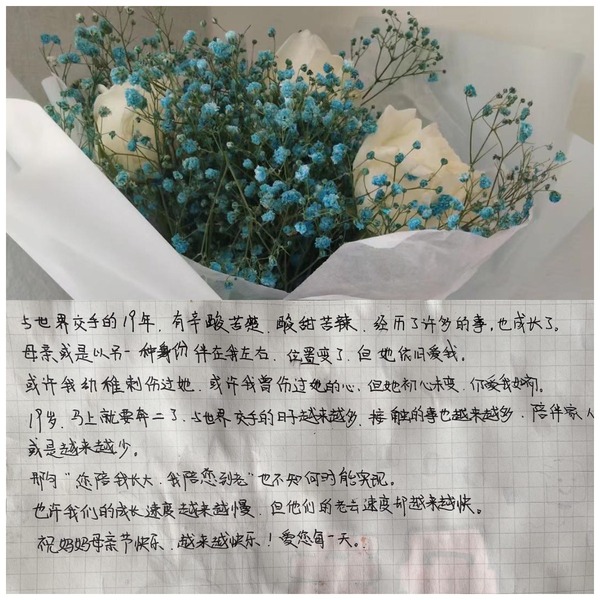 与世界交手的19年，有辛酸苦楚，酸甜苦辣，经历了许多的事，也成长了。
母亲或是以另一种身份伴在我左右，位置变了，但她依旧爱我。
或许我幼稚刺伤过她，或许我曾伤过她的心，但她初心未变，仍爱我如初。
19岁，马上就要奔二了，与世界交手的日子越来越多，接触的事也越来越多，陪伴家人
或是越来越少。
那句“您陪我长大，我陪您到老”也不知何时能实现。
也许我们的成长速度越来越慢，但他们的老去速度却越来越快。
祝妈妈母亲节快乐，越来越快乐！爱您每一天。